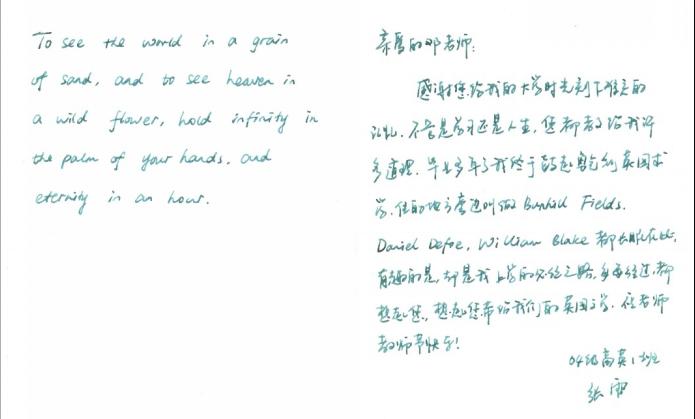 To see the world in a grain
of sand, and to see heaven in
a wild flower, hold infinity in
the palm of your hands, and
eternity in an hour.
亲爱的邓老师:
感谢您给我的大学时光刻下难忘的
记忆. 不管是学习还是人生, 您都教给我许
多道理. 毕业多年了我终于鼓起勇气到英国求
学. 住的地方旁边叫做 Bunhill Fields.
Daniel Defoe, William Blake 都长眠在此.
有趣的是, 却是我上学的必经之路, 每每经过, 都
想起您, 想起您带给我们的英国文学. 祝老师
教师节快乐!
04级高英1班
张雷